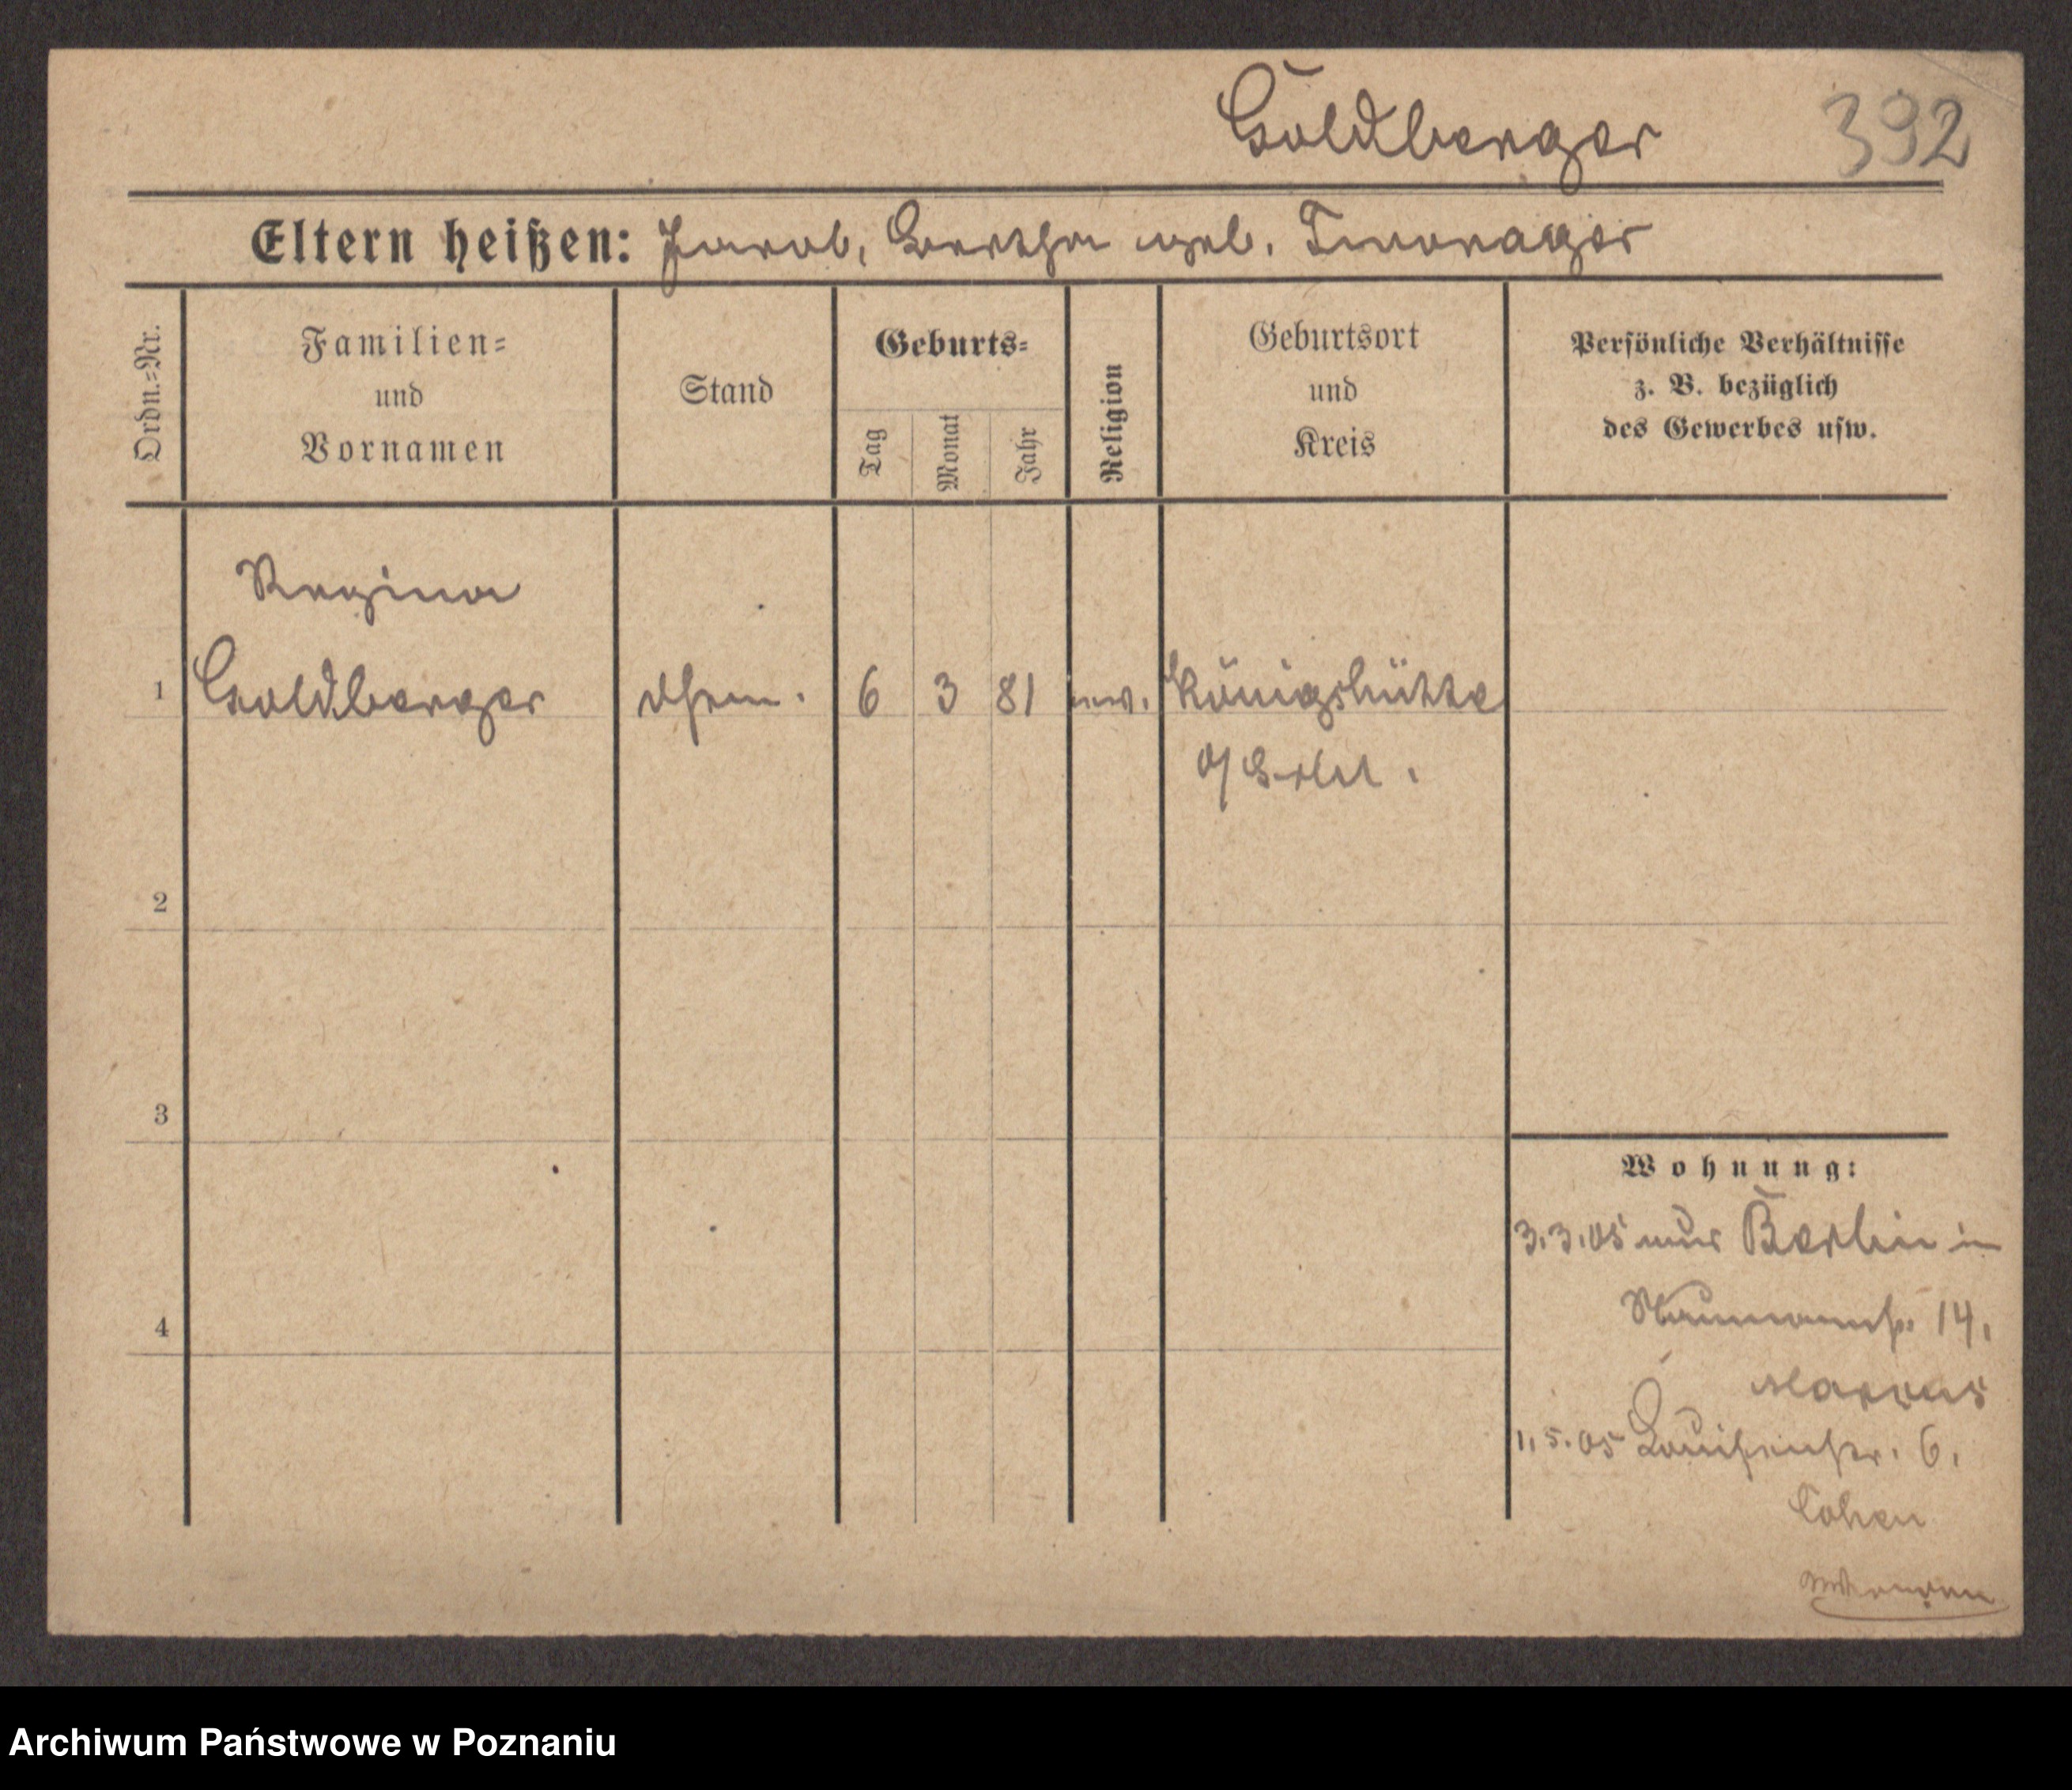 Goldberger 392
Eltern heißen: Jacob, Bertha geb.
Ordn.=Nr.
Familien=
und
Vornamen
Stand
Geburts=
Tag
Monat
Jahr
Religion
Geburtsort
und
Kreis
Persönliche Verhältnisse
z. B. bezüglich
des Gewerbes usw.
Regina
1 Goldberger 6 3 81 Königshütte
O/Schl.
2
3
4
Wohnung:
3.3.05 aus Berlin in
Naumannstr. 14.
Marcus
1.5.05 Louisenstr. 6.
Cohen
Archiwum Państwowe w Poznaniu